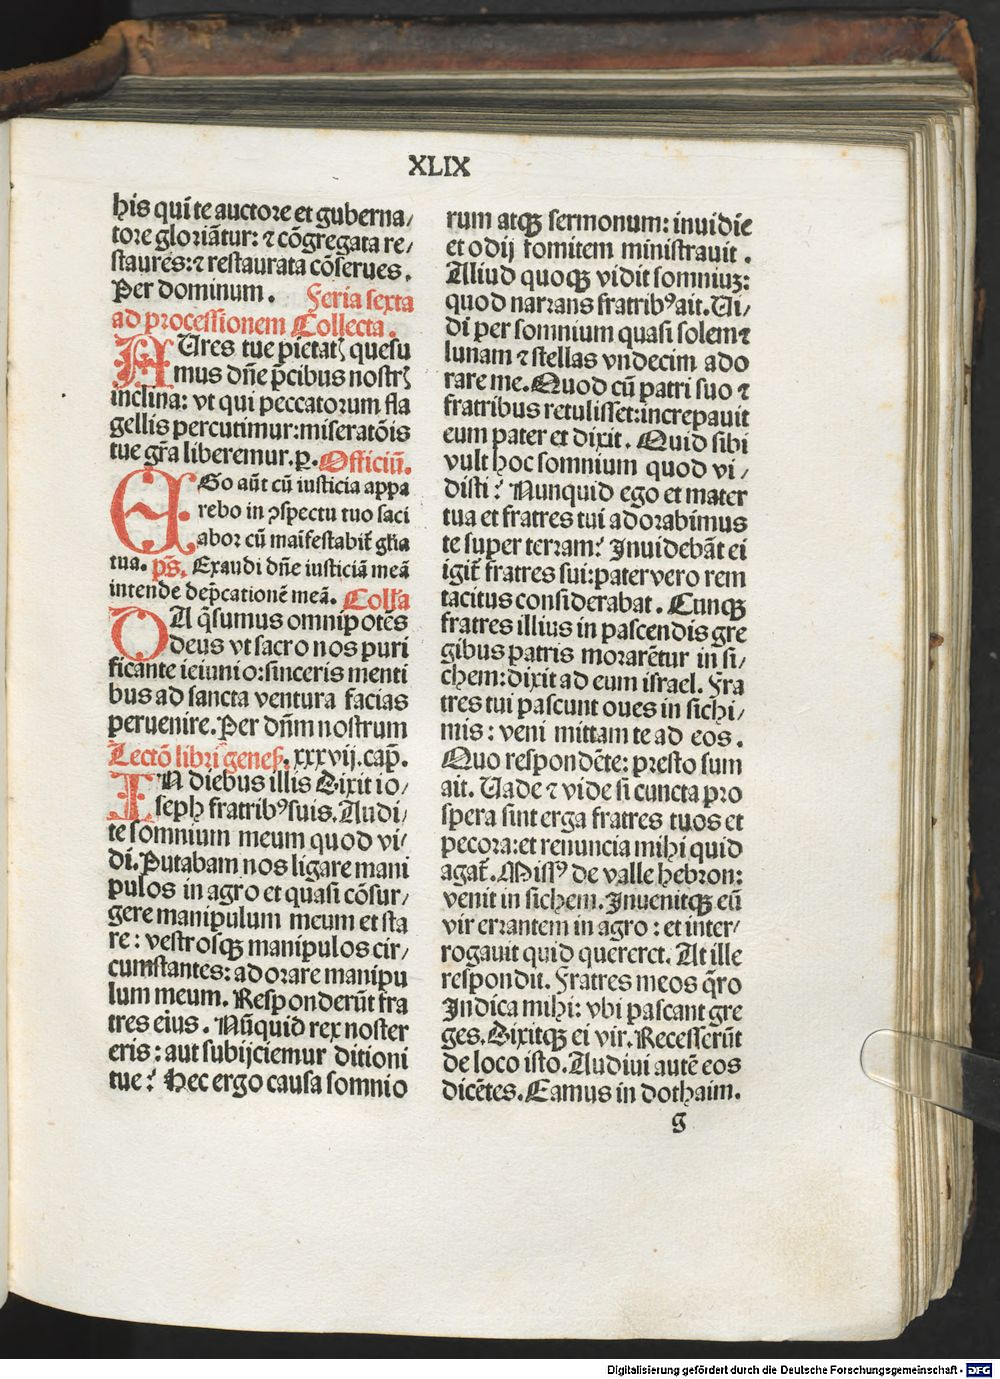 XLIX
his qui te auctore et guberna/
tore gloriãtur: ⁊ cõgregata re/
staures: ⁊ restaurata cõserues.
Per dominum. Feria sexta
ad processionem Collecta.
AUres tue pietatꝭ quesu
mus dñe p̃cibus nostrꝭ
inclina: vt qui peccatorum fla
gellis percutimur: miseratõis
tue gr̃a liberemur. p. Officiũ.
EGo aũt cũ iusticia appa
rebo in ꝯspectu tuo saci
abor cũ maifestabit̃ gl̃ia
tua. ps̃. Exaudi dñe iusticiã meã
intende dep̃cationẽ meã. Coll̃a
DA q̃sumus omnipotẽs
deus vt sacro nos puri
ficante ieiunio: sinceris menti
bus ad sancta ventura facias
peruenire. Per dñm nostrum
Lectõ libri geneß. xxxvij. cap̃.
IN diebus illis Dixit io/
seph fratribꝰ suis. Audi/
te somnium meum quod vi/
di. Putabam nos ligare mani
pulos in agro et quasi cõsur/
gere manipulum meum et sta
re: vestrosqꝫ manipulos cir/
cumstantes: adorare manipu
lum meum. Responderũt fra
tres eius. Nũquid rex noster
eris: aut subijciemur ditioni
tue? Hec ergo causa somnio
rum atqꝫ sermonum: inuidĩe
et odij fomitem ministrauit.
Aliud quoqꝫ vidit somniuꝫ:
quod narrans fratribꝰ ait. Ui/
di per somnium quasi solem ⁊
lunam ⁊ stellas vndecim ado
rare me. Quod cũ patri suo ⁊
fratribus retulisset: increpauit
eum pater et dixit. Quid sibi
vult hoc somnium quod vi/
disti? Nunquid ego et mater
tua et fratres tui adorabimus
te super terram? Inuidebãt ei
igit̃ fratres sui: pater vero rem
tacitus considerabat. Cunqꝫ
fratres illius in pascendis gre
gibus patris morarẽtur in si/
chem: dixit ad eum israel. Fra
tres tui pascunt oues in sichi/
mis: veni mittam te ad eos.
Quo respondẽte: presto sum
ait. Uade ⁊ vide si cuncta pro
spera sint erga fratres tuos et
pecora: et renuncia mihi quid
agat̃. Missꝰ de valle hebron:
venit in sichem. Inuenitqꝫ eũ
vir errantem in agro: et inter/
rogauit quid quereret. At ille
respondit. Fratres meos q̃ro
Indica mihi: vbi pascant gre
ges. Dixitqꝫ ei vir. Recesserũt
de loco isto. Audiui autẽ eos
dicẽtes. Eamus in dothaim.
g
Digitalisierung gefördert durch die Deutsche Forschungsgemeinschaft - DFG